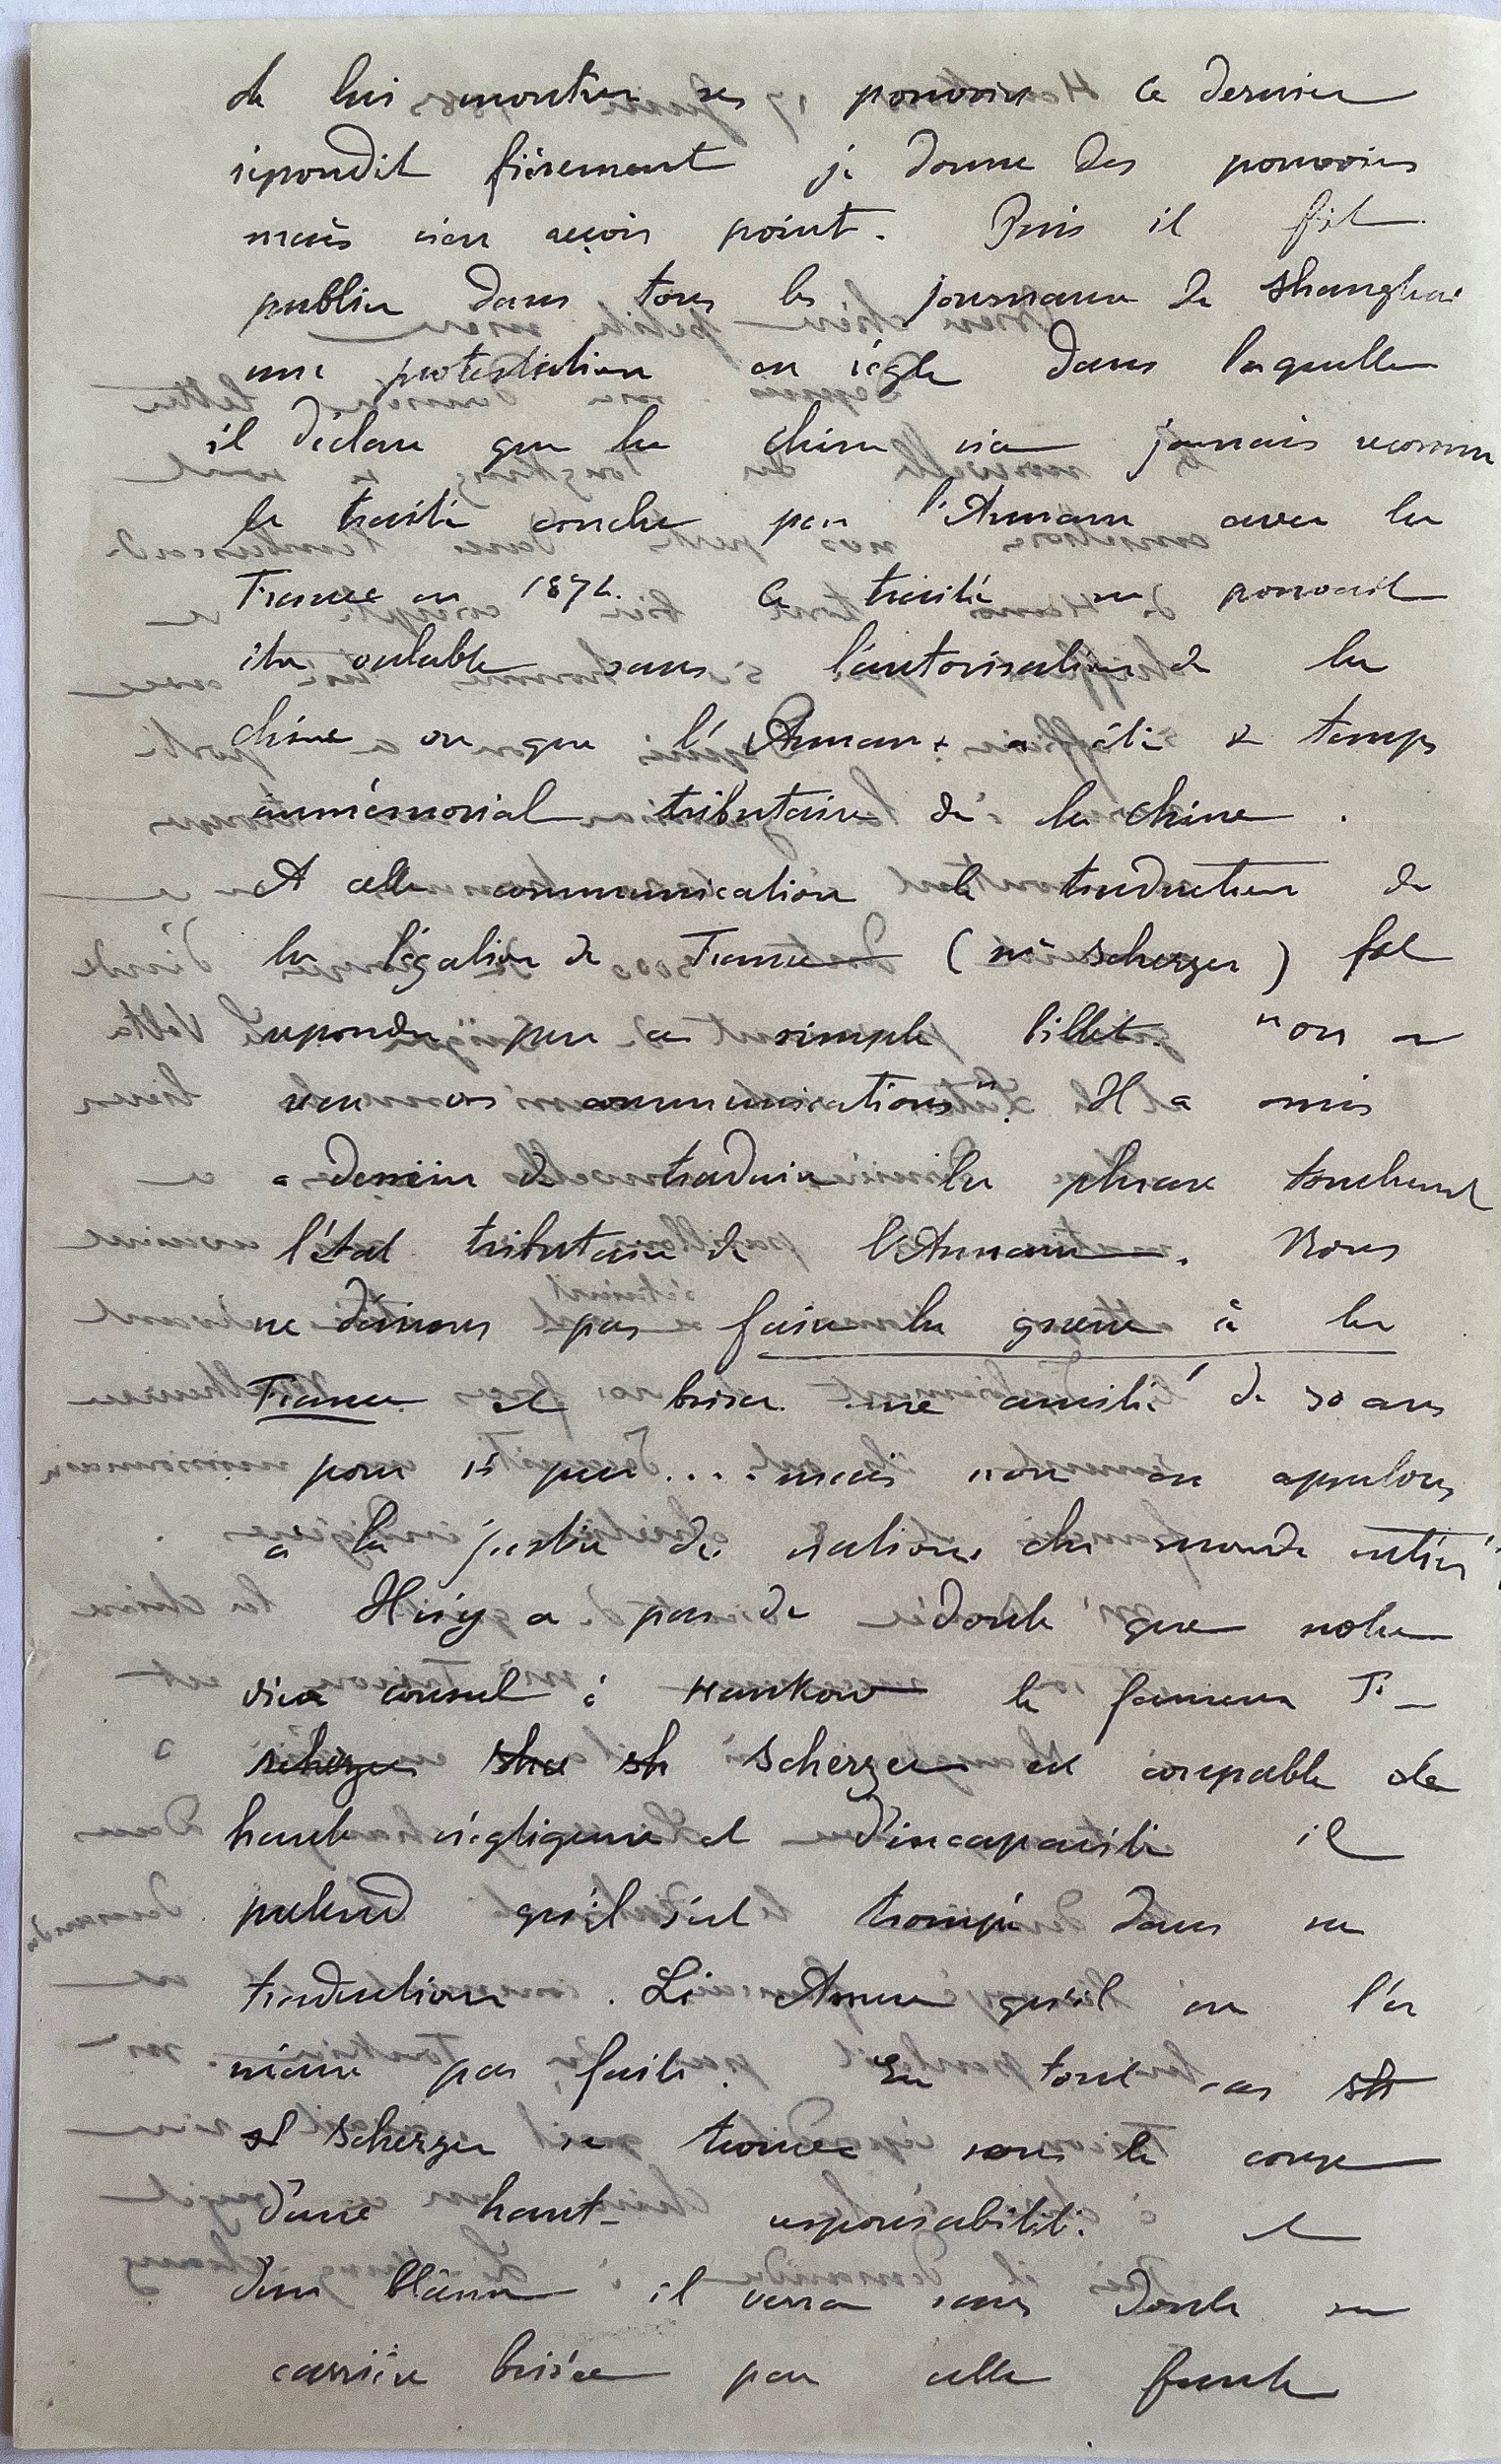 de lui montrer ses pouvoirs Ce dernier
répondit fièrement je donne des pouvoirs
mais n'en reçois point. Puis il fit
publier dans tous les journaux de Shanghai
une protestation en règle dans laquelle
il déclare que la Chine n'a jamais reconnu
le traité conclu par l'Annam avec la
France en 1874. Ce traité ne pouvait
être valable sans l'autorisation de la
Chine vu que l'Annam a été de temps
immémorial tributaire de la Chine.
A cette communication le traducteur de
la légation de France (Mr Scherzer) fit
repondre par ce simple billet. "on a
reçu vos communications". Il a omis
a dessein de traduire la phrase touchant
l'état tributaire de l'Annam. Nous
ne désirons pas faire la guerre à la
France et briser une amitié de 30 ans
pour si peu.... mais nous en appelons
a la justice des nations du monde entier"
Il n'y a pas de doute que notre
vice consul à Hankow le fameux
scherzer she sh Scherzer est coupable de
haute négligence et d'incapacité il
prétend qu'il s'est trompé dans sa
traduction. Li Assure qu'il ne l'a
même pas faite. En tout cas sh
st Scherzer se trouve sous le coup
d'une haute responsabilité. et
d'un blâme il verra sans doute sa
carrière brisée par cette faute